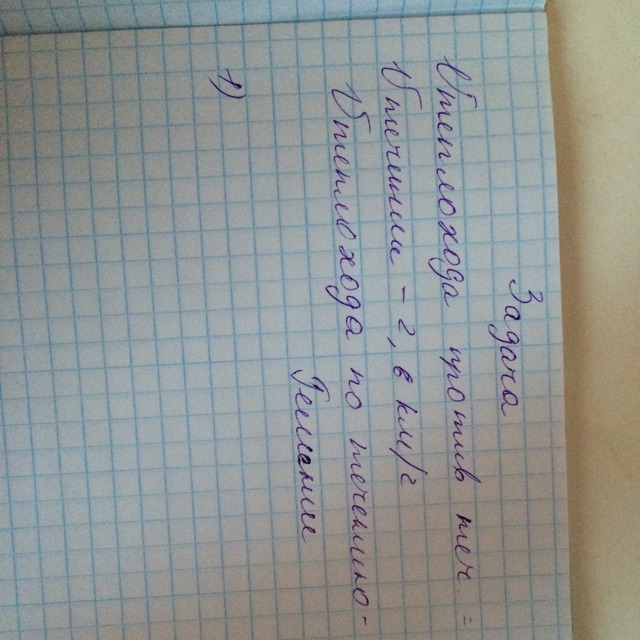 Задача
Vтеплохода против теч. =
Vтечении - 2, в км/ч
Vтеплохода по течению -
Решение
1)